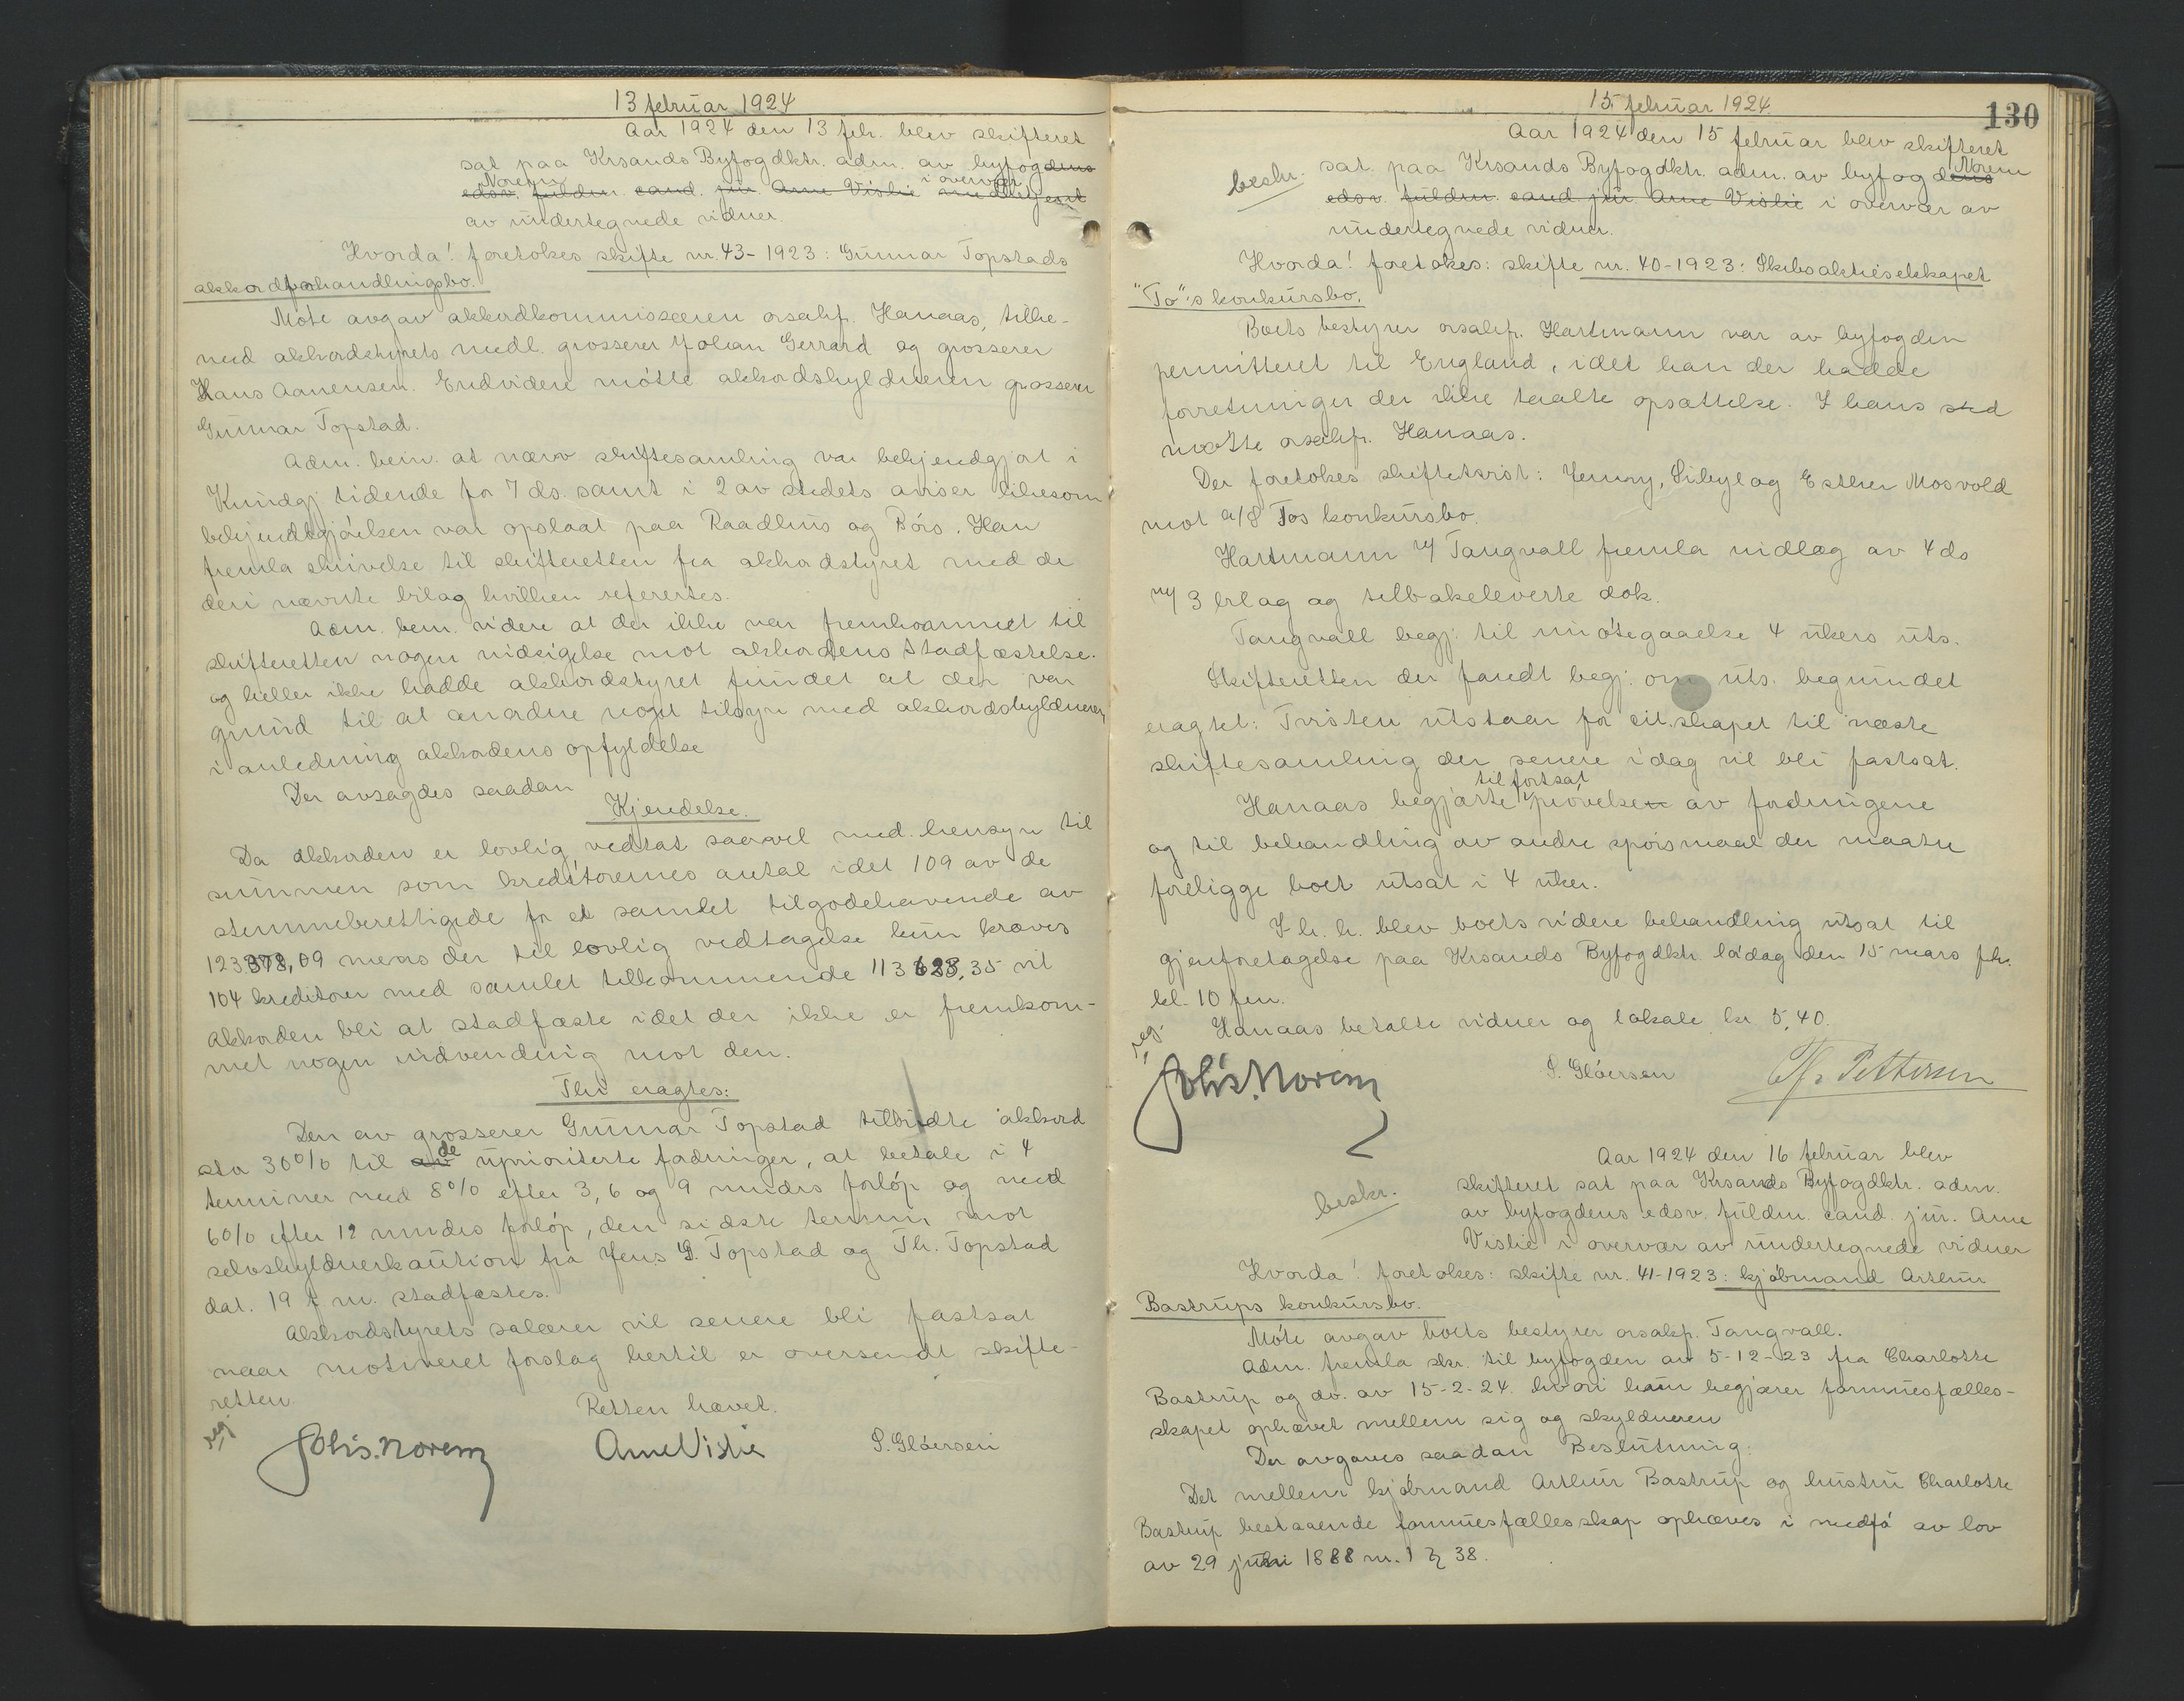 13 februar 1924
Aar 1924 den 13 feb. blev skifteret
sat paa Krsands Byfogdktr. adm. av byfogdens
Norem i overvær
edsv. fuldm. cand. jur. Arne Vislie
av undertegnede vidner.
Hvorda! foretokes skifte nr. 43-1923: Gunnar Topstads
akkordforhandlingsbo.
Møte avgav akkordkommissæren orsakf. Hanaas, tilli-
med akkordstyrets medl. grosserer Johan Gerrard og grosserer
Hans Aanensen. Endvidere møtte akkordskyldneren grosserer
Gunnar Topstad.
Adm. bem. at nærv skiftesamling var bekjendtgjort i
Kundgj. tidende for 7 ds. samt i 2 av stedets aviser likesom
bekjendtgjørelsen var opslaat paa Raadhus og Børs. Han
fremla skrivelse til skifteretten fra akkordstyret med de
deri nævnte bilag hvilken refereres.
Adm. bem. videre at der ikke var fremkommet til
skifteretten nogen indsigelse mot akkordens stadfæstelse.
og heller ikke hadde akkordstyret fundet at der var
grund til at anordne noget tilsyn med akkordskyldneren
i anledning akkordens opfyldelse
Der avsagdes saadan
Kjendelse.
Da akkorden er lovlig vedtat saavel med hensyn til
summen som kreditorernes antal idet 109 av de
stemmeberettigede for et samlet tilgodehavende av
123.378,09 mens der til lovlig vedtagelse kun kræves
104 kreditorer med samlet tilkommende 113 628,35 vil
Akkorden bli at stadfæste idet der ikke er fremkom-
met nogen indvending mot den.
Thi eragtes:
Den av grosserer Gunnar Topstad tilbudte akkord
sta 30% til de
av upriorterte fordringer, at betale i 4
terminer med 8% efter 3, 6 og 9 mndrs forløp og med
6% efter 12 mndrs forløp, den sidste termin mot
selvskyldnerkaution fra Jens G. Topstad og Th. Topstad
dat. 19 f. m. stadfæstes.
Akkordstyrets salærer vil senere bli fastsat
naar motiveret forslag hertil er oversendt skifte-
retten
Retten hævet.
reg.
Johs. Norem Arne Vislie S. Gløersen
15 februar 1924.
130
Aar 1924 den 15 februar blev skifteret
beskr. sat paa Krsands Byfogdktr. adm. av byfogdens Norem
edsv. fuldm. cand jur Arne Vislie i overvær av
undertegnede vidner.
Hvorda! foretokes: skifte nr. 40-1923: Skibsaktieselskapet
"To"'s konkursbo.
Boets bestyrer orsakf. Hartmann var av byfogden
permitteret til England, idet han der hadde
forretninger der ikke taalte opsættelse. I hans sted
møtte orsakf. Hanaas.
Der foretokes skiftetvist: Jenny, Sibyl og Esther Mosvold
mot a/s Tos konkursbo.
Hartmann v/ Tangvall fremla indlæg av 4 ds
m/ 3 bilag og tilbakeleverte dok.
Tangvall begj: til imøtegaaelse 4 ukers uts.
Skifteretten der fandt begj: om uts. begrundet
eragtet: Tvisten utstaar for eit.skapet til næste
skiftesamling der senere idag vil bli fastsat.
til fortsat
Hanaas begjærte prøvelsen av fordringene
og til behandling av andre spørsmaal der maatte
foreligge boet utsat i 4 uker.
I h. h. blev boets videre behandling utsat til
gjenforetagelse paa Krsands Byfogdktr. lørdag den 15 mars fh.
kl. 10 fm.
Hanaas betalte vidner og lokale kr 5,40.
reg.
Johs. Norem S. Gløersen Pettersen
Aar 1924 den 16 februar blev
beskr. skifteret sat paa Krsands Byfogdktr. adm.
av byfogdens edsv. fuldm. cand. jur. Arne
Vislie i overvær av undertegnede vidner
Hvorda! foretokes: skifte nr. 41-1923: kjøbmand Arthur
Bastrups konkursbo.
Møte avgav boets bestyrer orsakf. Tangvall.
Adm. fremla skr. til byfogden av 5-12-23 fra Charlotte
Bastrup og do. av 15-2-24. hvori hun begjærer formuesfælles-
skapet ophævet mellem sig og skyldneren
Der avgaves saadan Beslutning:
Det mellem kjøbmand Arthur Bastrup og hustru Charlotte
Bastrup bestaaende formuesfællesskap ophæves i medfø av lov
av 29 juni 1888 nr. 1 § 38.